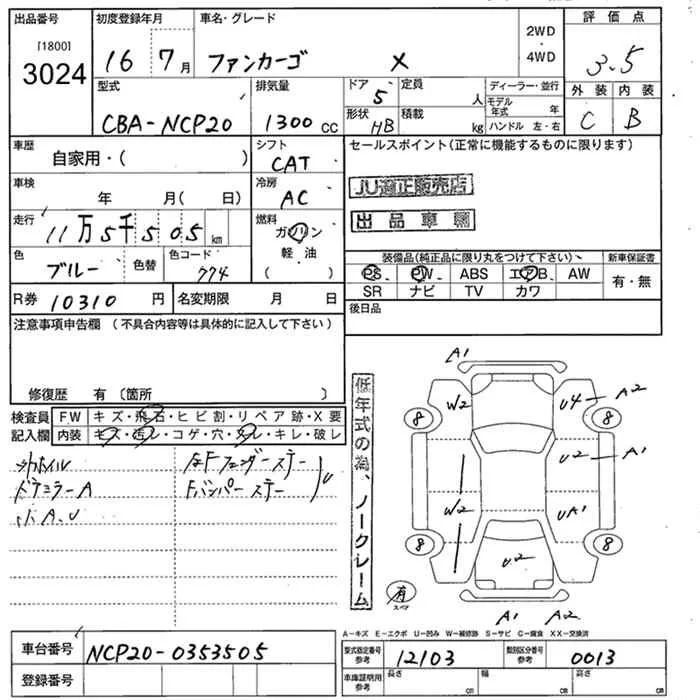 出品番号 初度登録年月 車名・グレード 2WD・4WD 評価点
[1800]
3024 16 7月 ファンカーゴ X 3.5
型式 排気量 ドア 定員 ディーラー・並行 外装 内装
5 人 モデル年式 年
CBA-NCP20 1300cc 形状 HB 積載 kg ハンドル 左・右 C B
車歴 シフト セールスポイント(正常に機能するものに限ります)
自家用・( ) CAT
車検 冷房 JU適正販売店
年 月(日) AC
走行 燃料 出品車輌
11万5千505km ガソリン
軽油
( )
色 色替 色コード 装備品(純正品に限り丸をつけて下さい) 新車保証書
ブルー 774 PS PW ABS エアB AW 有・無
SR ナビ TV カワ
R券 10310円 名変期限 月 日 後日品
注意事項申告欄(不具合内容等は具体的に記入して下さい)
修復歴 有(箇所 )
検査員記入欄 FW キズ・飛石・ヒビ割・リペア跡・X要
内装 キズ・汚レ・コゲ・穴・欠レ・キレ・破レ
ドアミラーA Fバンパーステー
小A、U U
低年式の為、ノークレーム
A1
W2 U4 A2
8 8
U2 A1
W2 UA1
8 8
U2
有
スペア
A1 A2
A-キズ E-エクボ U-凹み W-補修跡 S-サビ C-腐食 XX-交換済
車台番号 NCP20-0353505 型式指定番号 参考 12103 類別区分番号 参考 0013
登録番号 車庫証明用 参考 長さ cm 幅 cm 高さ cm